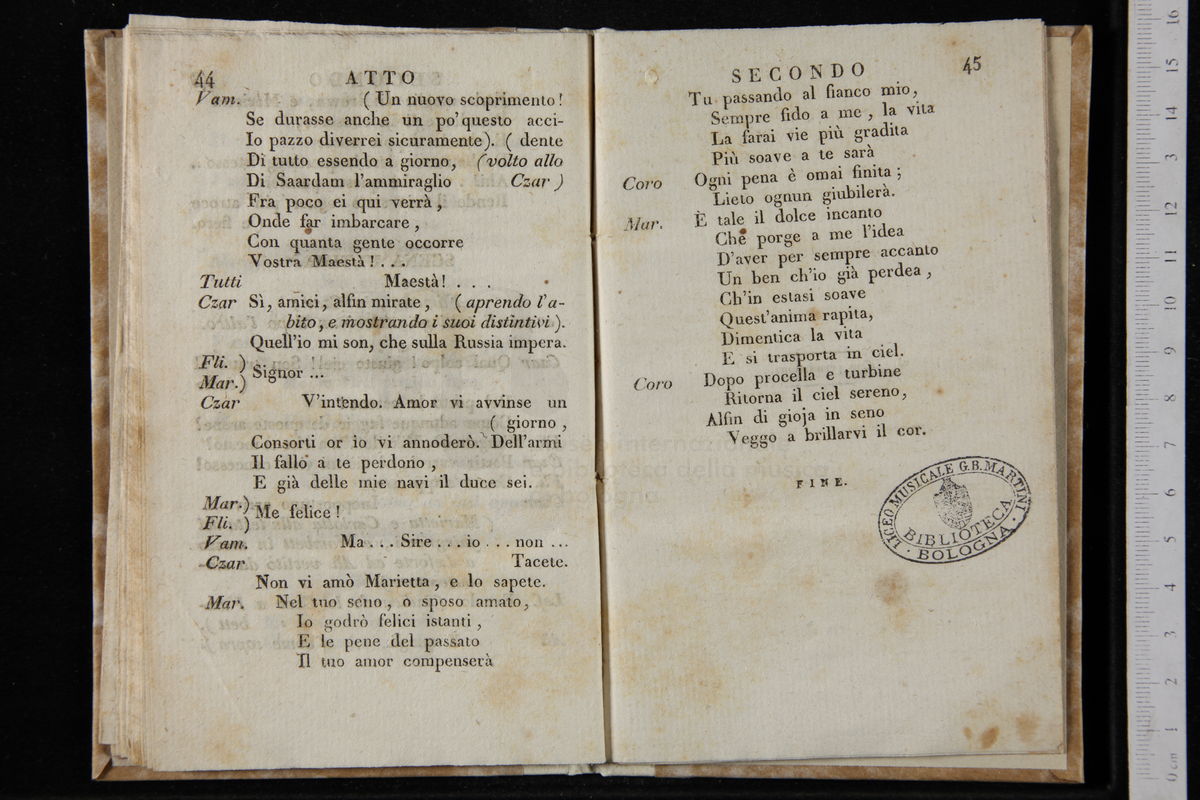 44 ATTO
Vam. ( Un nuovo scoprimento!
Se durasse anche un po' questo acci-
Io pazzo diverrei sicuramente). ( dente
Di tutto essendo a giorno, (volto allo
Di Saardam l'ammiraglio Czar )
Fra poco ei qui verrà,
Onde far imbarcare,
Con quanta gente occorre
Vostra Maestà! . . .
Tutti Maestà! . . .
Czar Sì, amici, alfin mirate, ( aprendo l'a-
bito, e mostrando i suoi distintivi ).
Quell'io mi son, che sulla Russia impera.
Fli. )
Mar.) Signor ...
Czar V'intendo. Amor vi avvinse un
( giorno,
Consorti or io vi annoderò. Dell'armi
Il fallo a te perdono,
E già delle mie navi il duce sei.
Mar.)
Fli. ) Me felice!
Vam. Ma . . . Sire . . . io . . . non ...
Czar Tacete.
Non vi amò Marietta, e lo sapete.
Mar. Nel tuo seno, o sposo amato,
Io godrò felici istanti,
E le pene del passato
Il tuo amor compenserà
SECONDO 45
Tu passando al fianco mio,
Sempre fido a me, la vita
La farai vie più gradita
Più soave a te sarà
Coro Ogni pena è omai finita;
Lieto ognun giubilerà.
Mar. È tale il dolce incanto
Che porge a me l'idea
D'aver per sempre accanto
Un ben ch'io già perdea,
Ch'in estasi soave
Quest'anima rapita,
Dimentica la vita
E si trasporta in ciel.
Coro Dopo procella e turbine
Ritorna il ciel sereno,
Alfin di gioja in seno
Veggo a brillarvi il cor.
FINE.
LICEO MUSICALE G.B. MARTINI
BIBLIOTECA
· BOLOGNA ·
museo internazionale
biblioteca della musica
bologna
0 cm 1 2 3 4 5 6 7 8 9 10 11 12 13 14 15 16